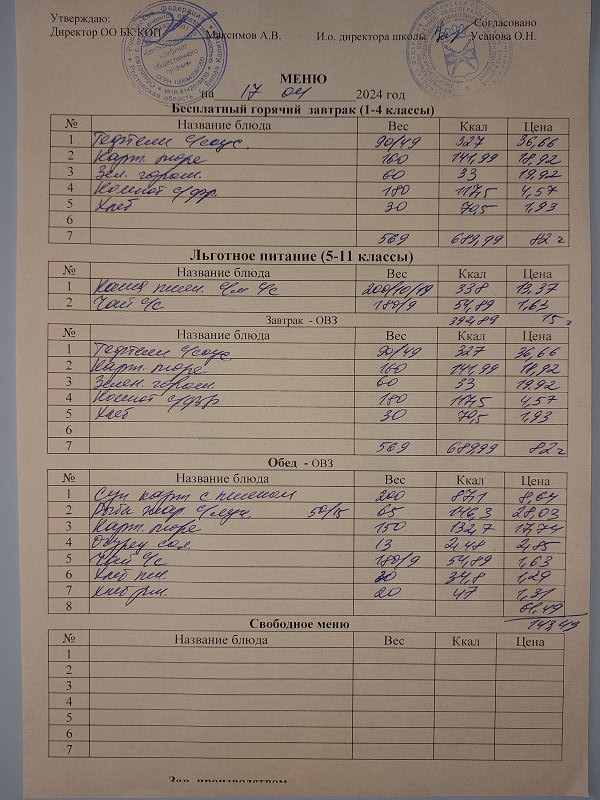 Утверждаю:
Согласовано
Директор ОО БК КОП Максимов А.В.
И.о. директора школы Усанова О.Н.
МЕНЮ
на 17 04 2024 год
Бесплатный горячий завтрак (1-4 классы)
№ Название блюда Вес Ккал Цена
1 Тефтели с/соус 90/49 327 36,66
2 Карт. пюре 160 141,99 18,92
3 Зел. горош. 60 33 19,92
4 Компот с/фр. 180 117,5 4,57
5 Хлеб 30 70,5 1,93
6
7 569 689,99 82
Льготное питание (5-11 классы)
№ Название блюда Вес Ккал Цена
1 Каша пшен. 200/10/19 338 13,37
2 Чай с/с 180/9 54,89 1,63
Завтрак - ОВЗ 392,89 15
№ Название блюда Вес Ккал Цена
1 Тефтели с/соус 90/49 327 36,66
2 Карт. пюре 160 141,99 18,92
3 Зелен. горош. 60 33 19,92
4 Компот с/фр 180 117,5 4,57
5 Хлеб 30 70,5 1,93
6
7 569 689,99 82
Обед - ОВЗ
№ Название блюда Вес Ккал Цена
1 Суп карт с пшеном 200 87,1 8,64
2 Рыба жар. с/лук 50/15 65 146,3 28,03
3 Карт. пюре 150 132,7 17,74
4 Огурец сол. 13 2,48 2,85
5 Чай с/с 180/9 54,89 1,63
6 Хлеб пш. 34,8 1,29
7 Хлеб рж. 20 47 1,31
8 61,49
143,49
Свободное меню
№ Название блюда Вес Ккал Цена
1
2
3
4
5
6
7
Зав. производством